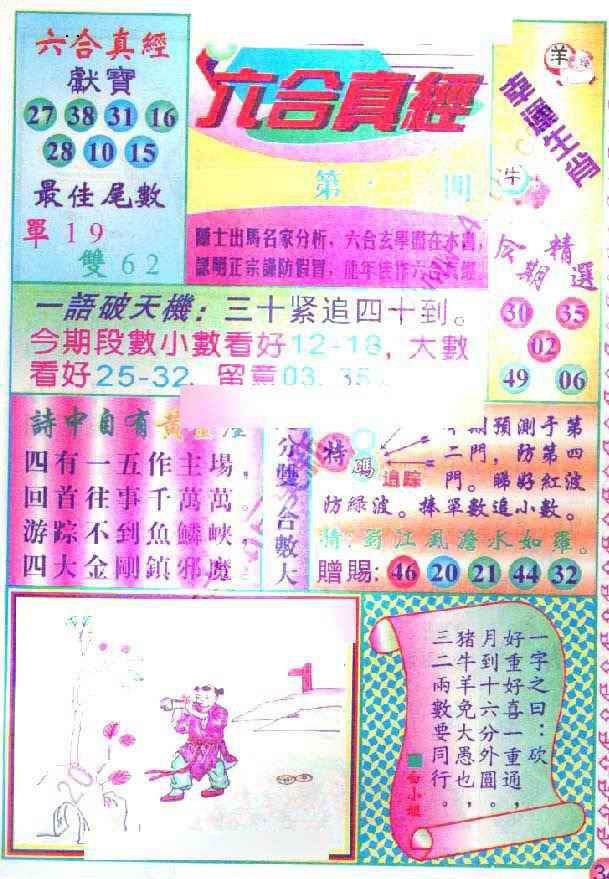 六合真經
獻寶
27 38 31 16
28 10 15
最佳尾數
單19
雙62
六合真經
第
期
隱士出馬名家分析，六合玄學盡在本書，
認明正宗謹防假冒，龍年佳作六合真經
羊
幸運生肖
牛
今期精選
30 35
02
49 06
一語破天機：三十紧追四十到。
今期段數小數看好12-18，大數
看好25-32，留意03, 35
詩中自有黃
四有一五作主場，
回首往事千萬萬。
游踪不到魚鱗峽，
四大金剛鎮邪魔
分雙合數大
特碼
追踪
期預測于第
二門，防第四
門。睇好紅波
防綠波。捧單數追小數。
蜀江風澹水如羅。
贈賜：46 20 21 44 32
一字之曰：砍
好重好喜一重通，
月到十六分外圓，
猪牛羊兔大愚也，
三二兩數要同行。
白小姐
3